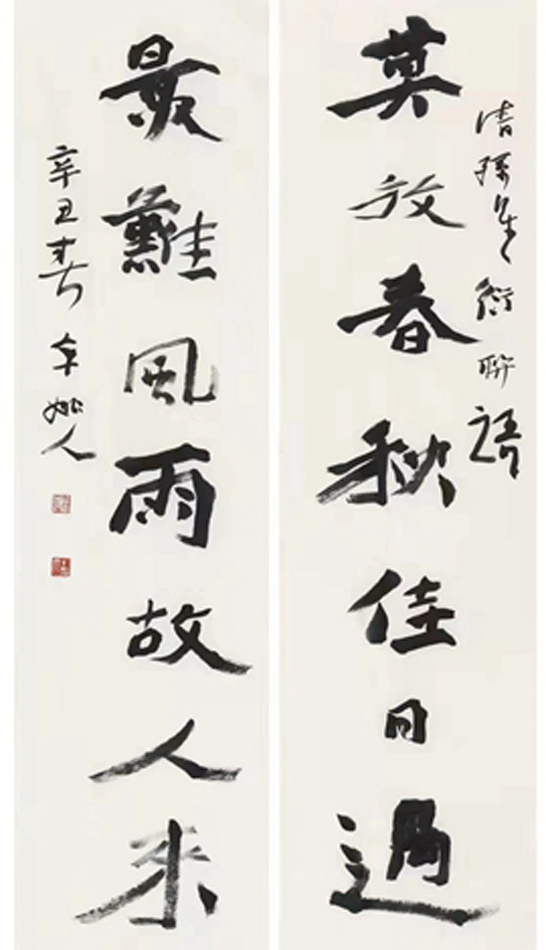 莫放春秋佳日過
清孫星衍聯語
最難風雨故人來
辛丑春